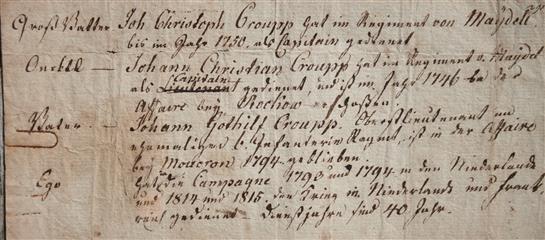 Groß Vatter Joh Christoph Croupp hat im Regiment von Maydell
bis im Jahr 1750. als Capitain gedienet
Onckel — Johann Christian Croupp hat im Regiment v. Maydel
Capitain
als Lieutenant gedienet, und ist im Jahr 1746 bey der
Affaire bey Rochow erschoßen.
Vater — Johann Gothilf Croupp. Oberstlieutenant im
ehemaligen 6. Infanterie Regmt, ist in der Affaire
bey Moucron 1794 geblieben.
Ego hat die Campagne 1793 und 1794 in den Niederlands
und 1814 und 1815. den Krieg in Niederlands und Frank-
reich gedienet Dienstjahre sind 40 Jahr.